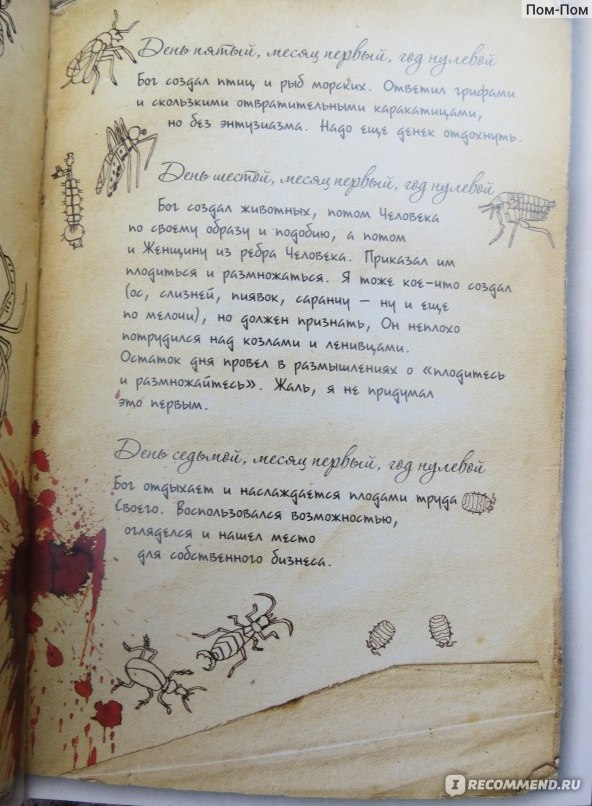 Пом-Пом
День пятый, месяц первый, год нулевой
Бог создал птиц и рыб морских. Ответил грифами
и скользкими отвратительными каракатицами,
но без энтузиазма. Надо еще денек отдохнуть.
День шестой, месяц первый, год нулевой
Бог создал животных, потом Человека
по своему образу и подобию, а потом
и Женщину из ребра Человека. Приказал им
плодиться и размножаться. Я тоже кое-что создал
(ос, слизней, пиявок, саранчу — ну и еще
по мелочи), но должен признать, Он неплохо
потрудился над козлами и ленивцами.
Остаток дня провел в размышлениях о «плодитесь
и размножайтесь». Жаль, я не придумал
это первым.
День седьмой, месяц первый, год нулевой
Бог отдыхает и наслаждается плодами труда
Своего. Воспользовался возможностью,
огляделся и нашел место
для собственного бизнеса.
I RECOMMEND.RU